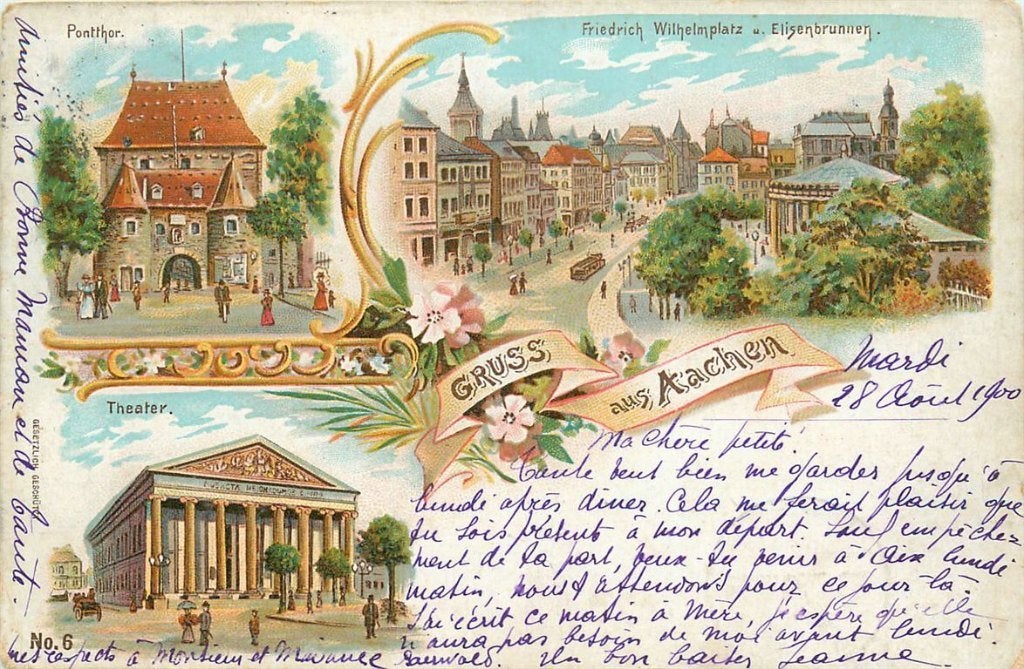 Pontthor.
Friedrich Wilhelmplatz u. Elisenbrunnen.
GRUSS
aus Aachen
Theater.
GESETZLICH GESCHÜTZT
No. 6
Mardi
28 Août 1900
Ma chère petite!
Tante veut bien me garder jusqu'à
lundi après diner. Cela me ferait plaisir que
tu sois présente à mon départ. Sauf empêche
ment de ta part, veux-tu venir à Aix lundi
matin, nous t'attendons pour ce jour là.
J'ai écrit ce matin à Mère, j'espère qu'elle
n'aura pas besoin de moi avant lundi.
Un bon baiser Jeanne
mes respects à Monsieur et Madame
Amitiés de Bonne Maman et de Tante.